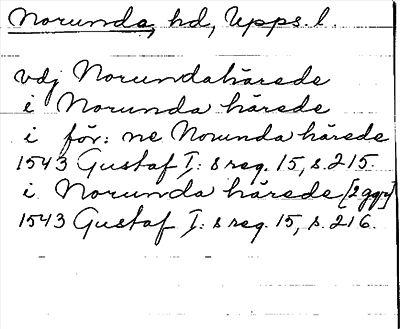 Norunda, hd, Upps. l.
vdj Norundahärede
i Norunda härede
i för: ne Norunda härede
1543 Gustaf I: s reg. 15, s. 215.
i Norunda härede [2 ggr]
1543 Gustaf I: s reg. 15, s. 216.